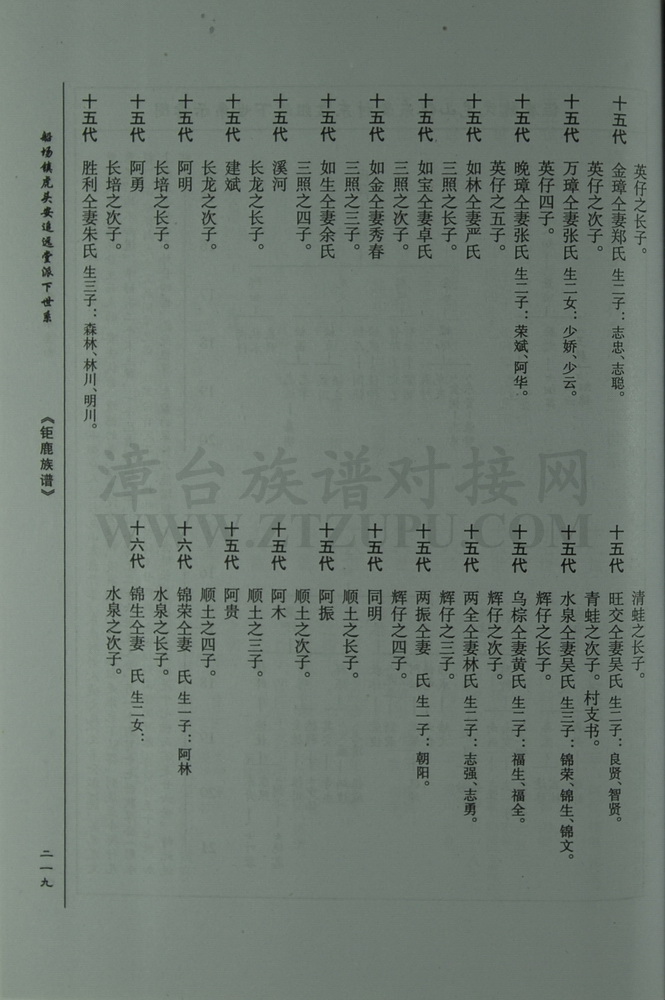 英仔之长子。
十五代 金璋仝妻郑氏 生二子：志忠、志聪。
英仔之次子。
十五代 万璋仝妻张氏 生二女：少娇、少云。
英仔四子。
十五代 晚璋仝妻张氏 生二子：荣斌、阿华。
英仔之五子。
十五代 如林仝妻严氏
三照之长子。
十五代 如宝仝妻卓氏
三照之次子。
十五代 如金仝妻秀春
三照之三子。
十五代 如生仝妻余氏
三照之四子。
十五代 溪河
长龙之长子。
十五代 建斌
长龙之次子。
十五代 阿明
长培之长子。
十五代 阿勇
长培之次子。
十五代 胜利仝妻朱氏 生三子：森林、林川、明川。
清蛙之长子。
十五代 旺交仝妻吴氏 生二子：良贤、智贤。
青蛙之次子。村支书。
十五代 水泉仝妻吴氏 生三子：锦荣、锦生、锦文。
辉仔之长子。
十五代 乌棕仝妻黄氏 生二子：福生、福全。
辉仔之次子。
十五代 两全仝妻林氏 生二子：志强、志勇。
辉仔之三子。
十五代 两振仝妻 氏 生一子：朝阳。
辉仔之四子。
十五代 同明
顺土之长子。
十五代 阿振
顺土之次子。
十五代 阿木
顺土之三子。
十五代 阿贵
顺土之四子。
十六代 锦荣仝妻 氏 生一子：阿林
水泉之长子。
十六代 锦生仝妻 氏 生二女：
水泉之次子。
船场镇虎头安追远堂派下世系
《钜鹿族谱》
二一九
漳台族谱对接网
WWW.ZTZUPU.COM